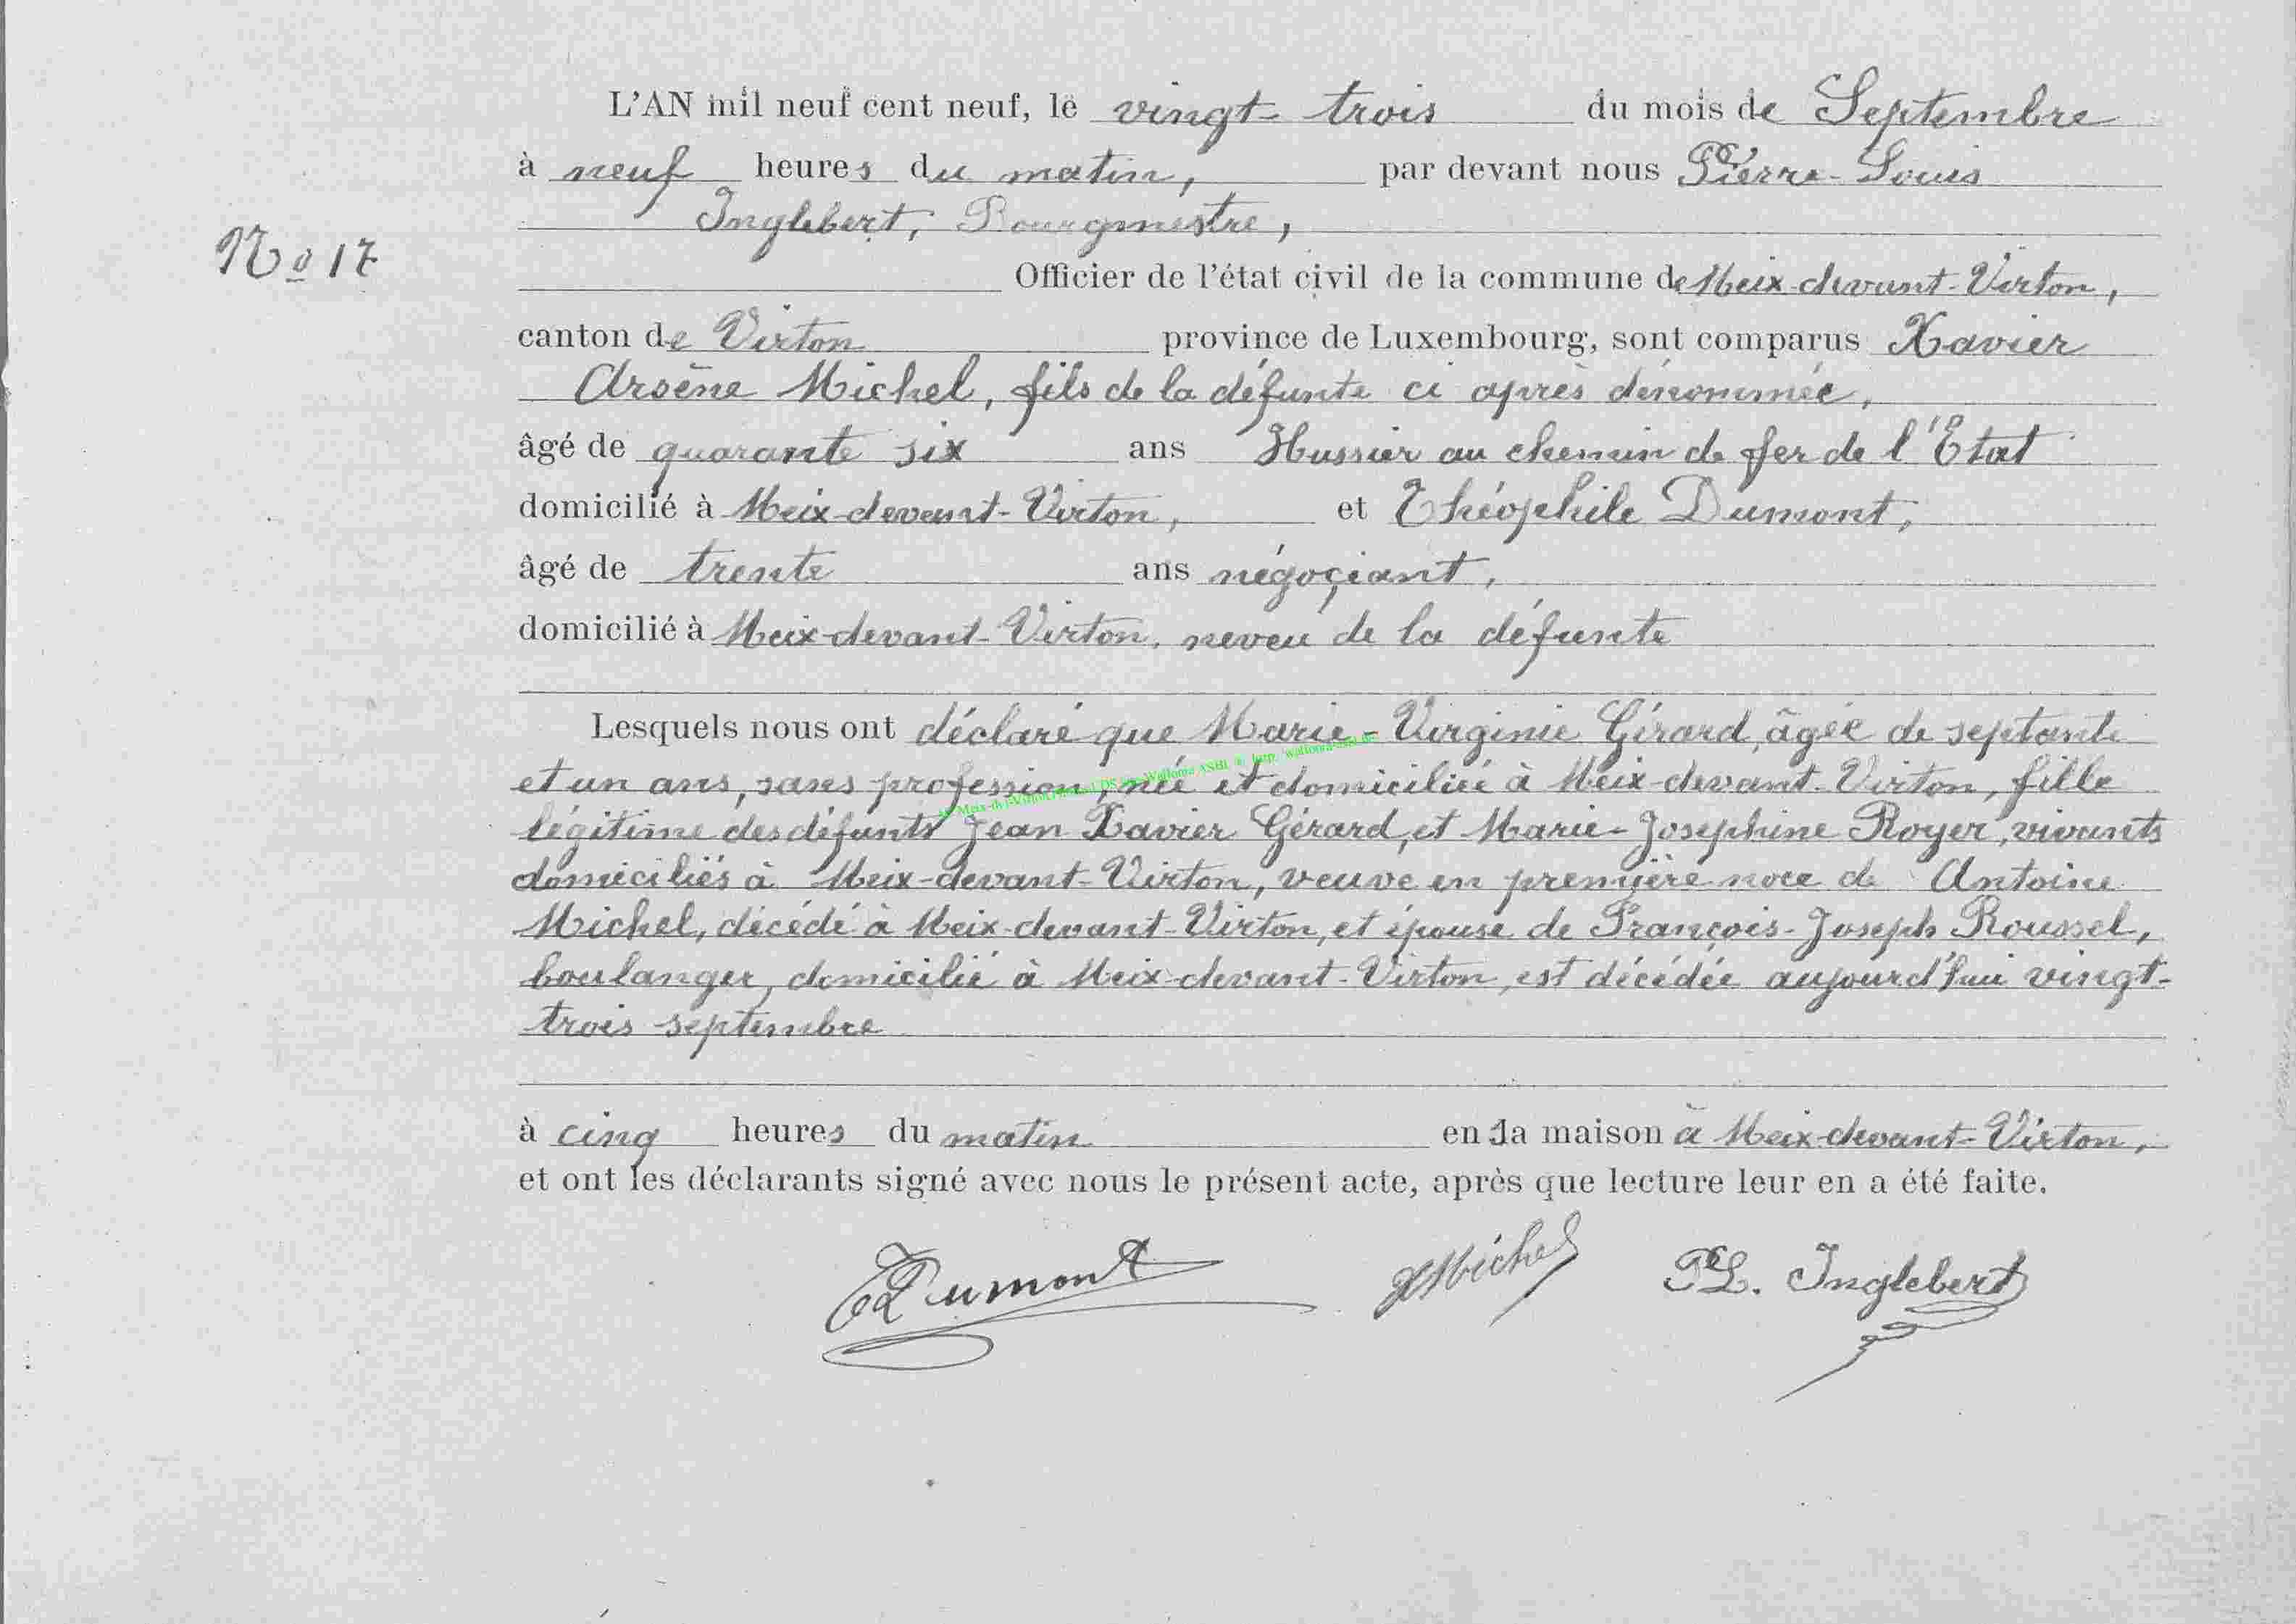 L'AN mil neuf cent neuf, le vingt-trois du mois de Septembre
à neuf heures du matin, par devant nous Pierre-Louis
Inglebert, Bourgmestre,
No 17
Officier de l'état civil de la commune de Meix-devant-Virton,
canton de Virton province de Luxembourg, sont comparus Xavier
Arsène Michel, fils de la défunte ci après dénommée,
âgé de quarante six ans Hussier au chemin de fer de l'Etat
domicilié à Meix-devant-Virton, et Théophile Dumont,
âgé de trente ans négoçiant,
domicilié à Meix-devant-Virton, neveu de la défunte
Lesquels nous ont déclaré que Marie-Virginie Gérard, âgée de septante
et un ans, sans profession, née et domiciliée à Meix-devant-Virton, fille
légitime des défunts Jean Xavier Gérard, et Marie-Joséphine Royer, vivants
domiciliés à Meix-devant-Virton, veuve en première noce de Antoine
Michel, décédé à Meix-devant-Virton, et épouse de François-Joseph Roussel,
boulanger, domicilié à Meix-devant-Virton, est décédée aujourd'hui vingt-
trois septembre
à cinq heures du matin en sa maison à Meix-devant-Virton,
et ont les déclarants signé avec nous le présent acte, après que lecture leur en a été faite.
TDumont XMichel PL. Inglebert